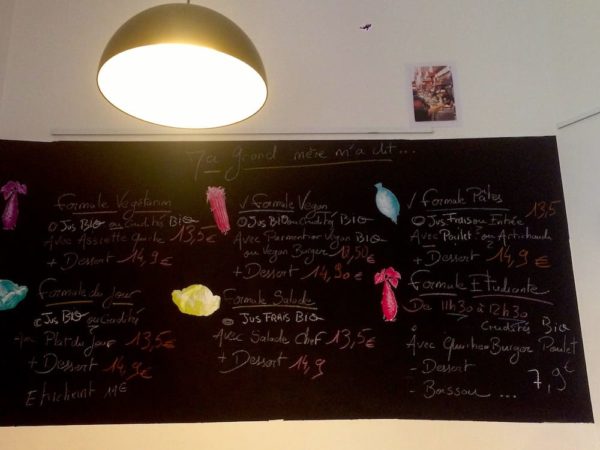 7a grand mère m'a dit...
Formule Végétarien
Jus BIO ou Crudités BIO
Avec Assiette Quiche 13,5€
+ Dessert 14,9€
Formule du Jour
Jus BIO ou Crudité
Avec Plat du Jour 13,5€
+ Dessert 14,9€
Etudiant 11€
√ Formule Végan
Jus BIO ou Crudité BIO
Avec Parmentier Végan BIO
ou Végan Burger 13,50€
+ Dessert 14,90€
Formule Salade
Jus FRAIS BIO
Avec Salade Chef 13,5€
+ Dessert 14,9
√ Formule Pâtes 13,5
Jus Frais ou Entrée
Avec Poulet ou Artichauds
+ Dessert 14,9€
Formule Etudiante
De 11h30 à 12h30
Crudités Bio
Avec Quiche ou Burger Poulet
- Dessert
- Boisson ... 7,9€